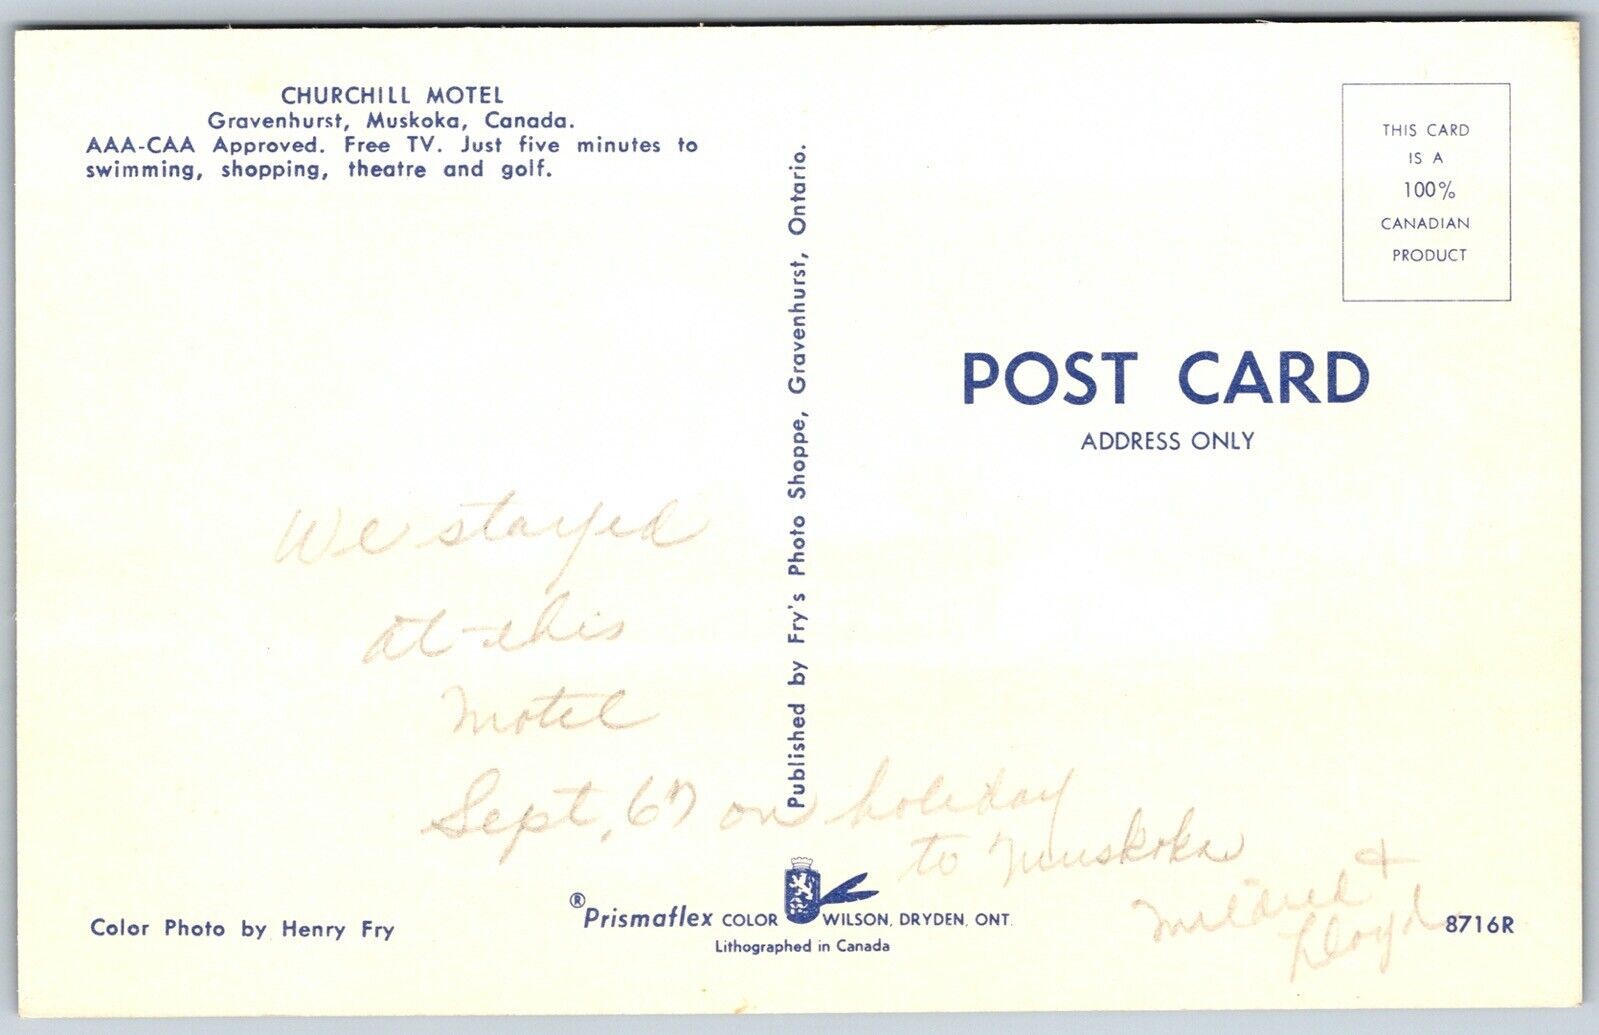 CHURCHILL MOTEL
Gravenhurst, Muskoka, Canada.
AAA-CAA Approved. Free TV. Just five minutes to
swimming, shopping, theatre and golf.
We stayed
at this
Motel
Sept, 67 on holiday
to Muskoka
Mildred &
Lloyd
Color Photo by Henry Fry
Published by Fry's Photo Shoppe, Gravenhurst, Ontario.
® Prismaflex COLOR WILSON, DRYDEN, ONT.
Lithographed in Canada
THIS CARD
IS A
100%
CANADIAN
PRODUCT
POST CARD
ADDRESS ONLY
8716R